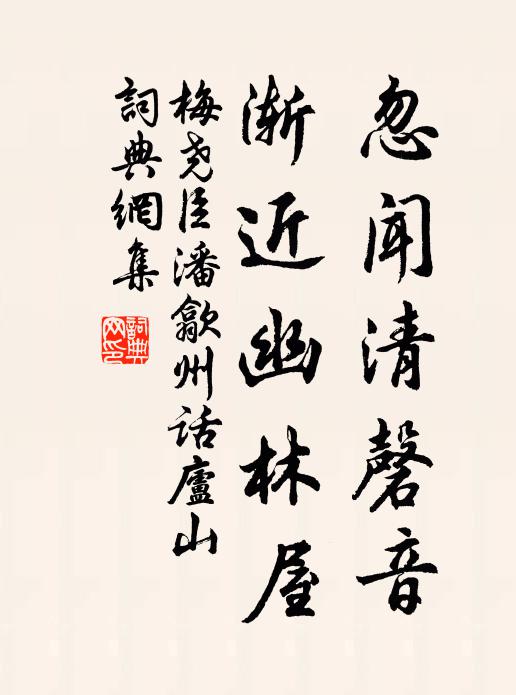 忽闻清磬音
渐近幽林屋
梅尧臣潘歙州话廬山
詞典網集
詞典网印